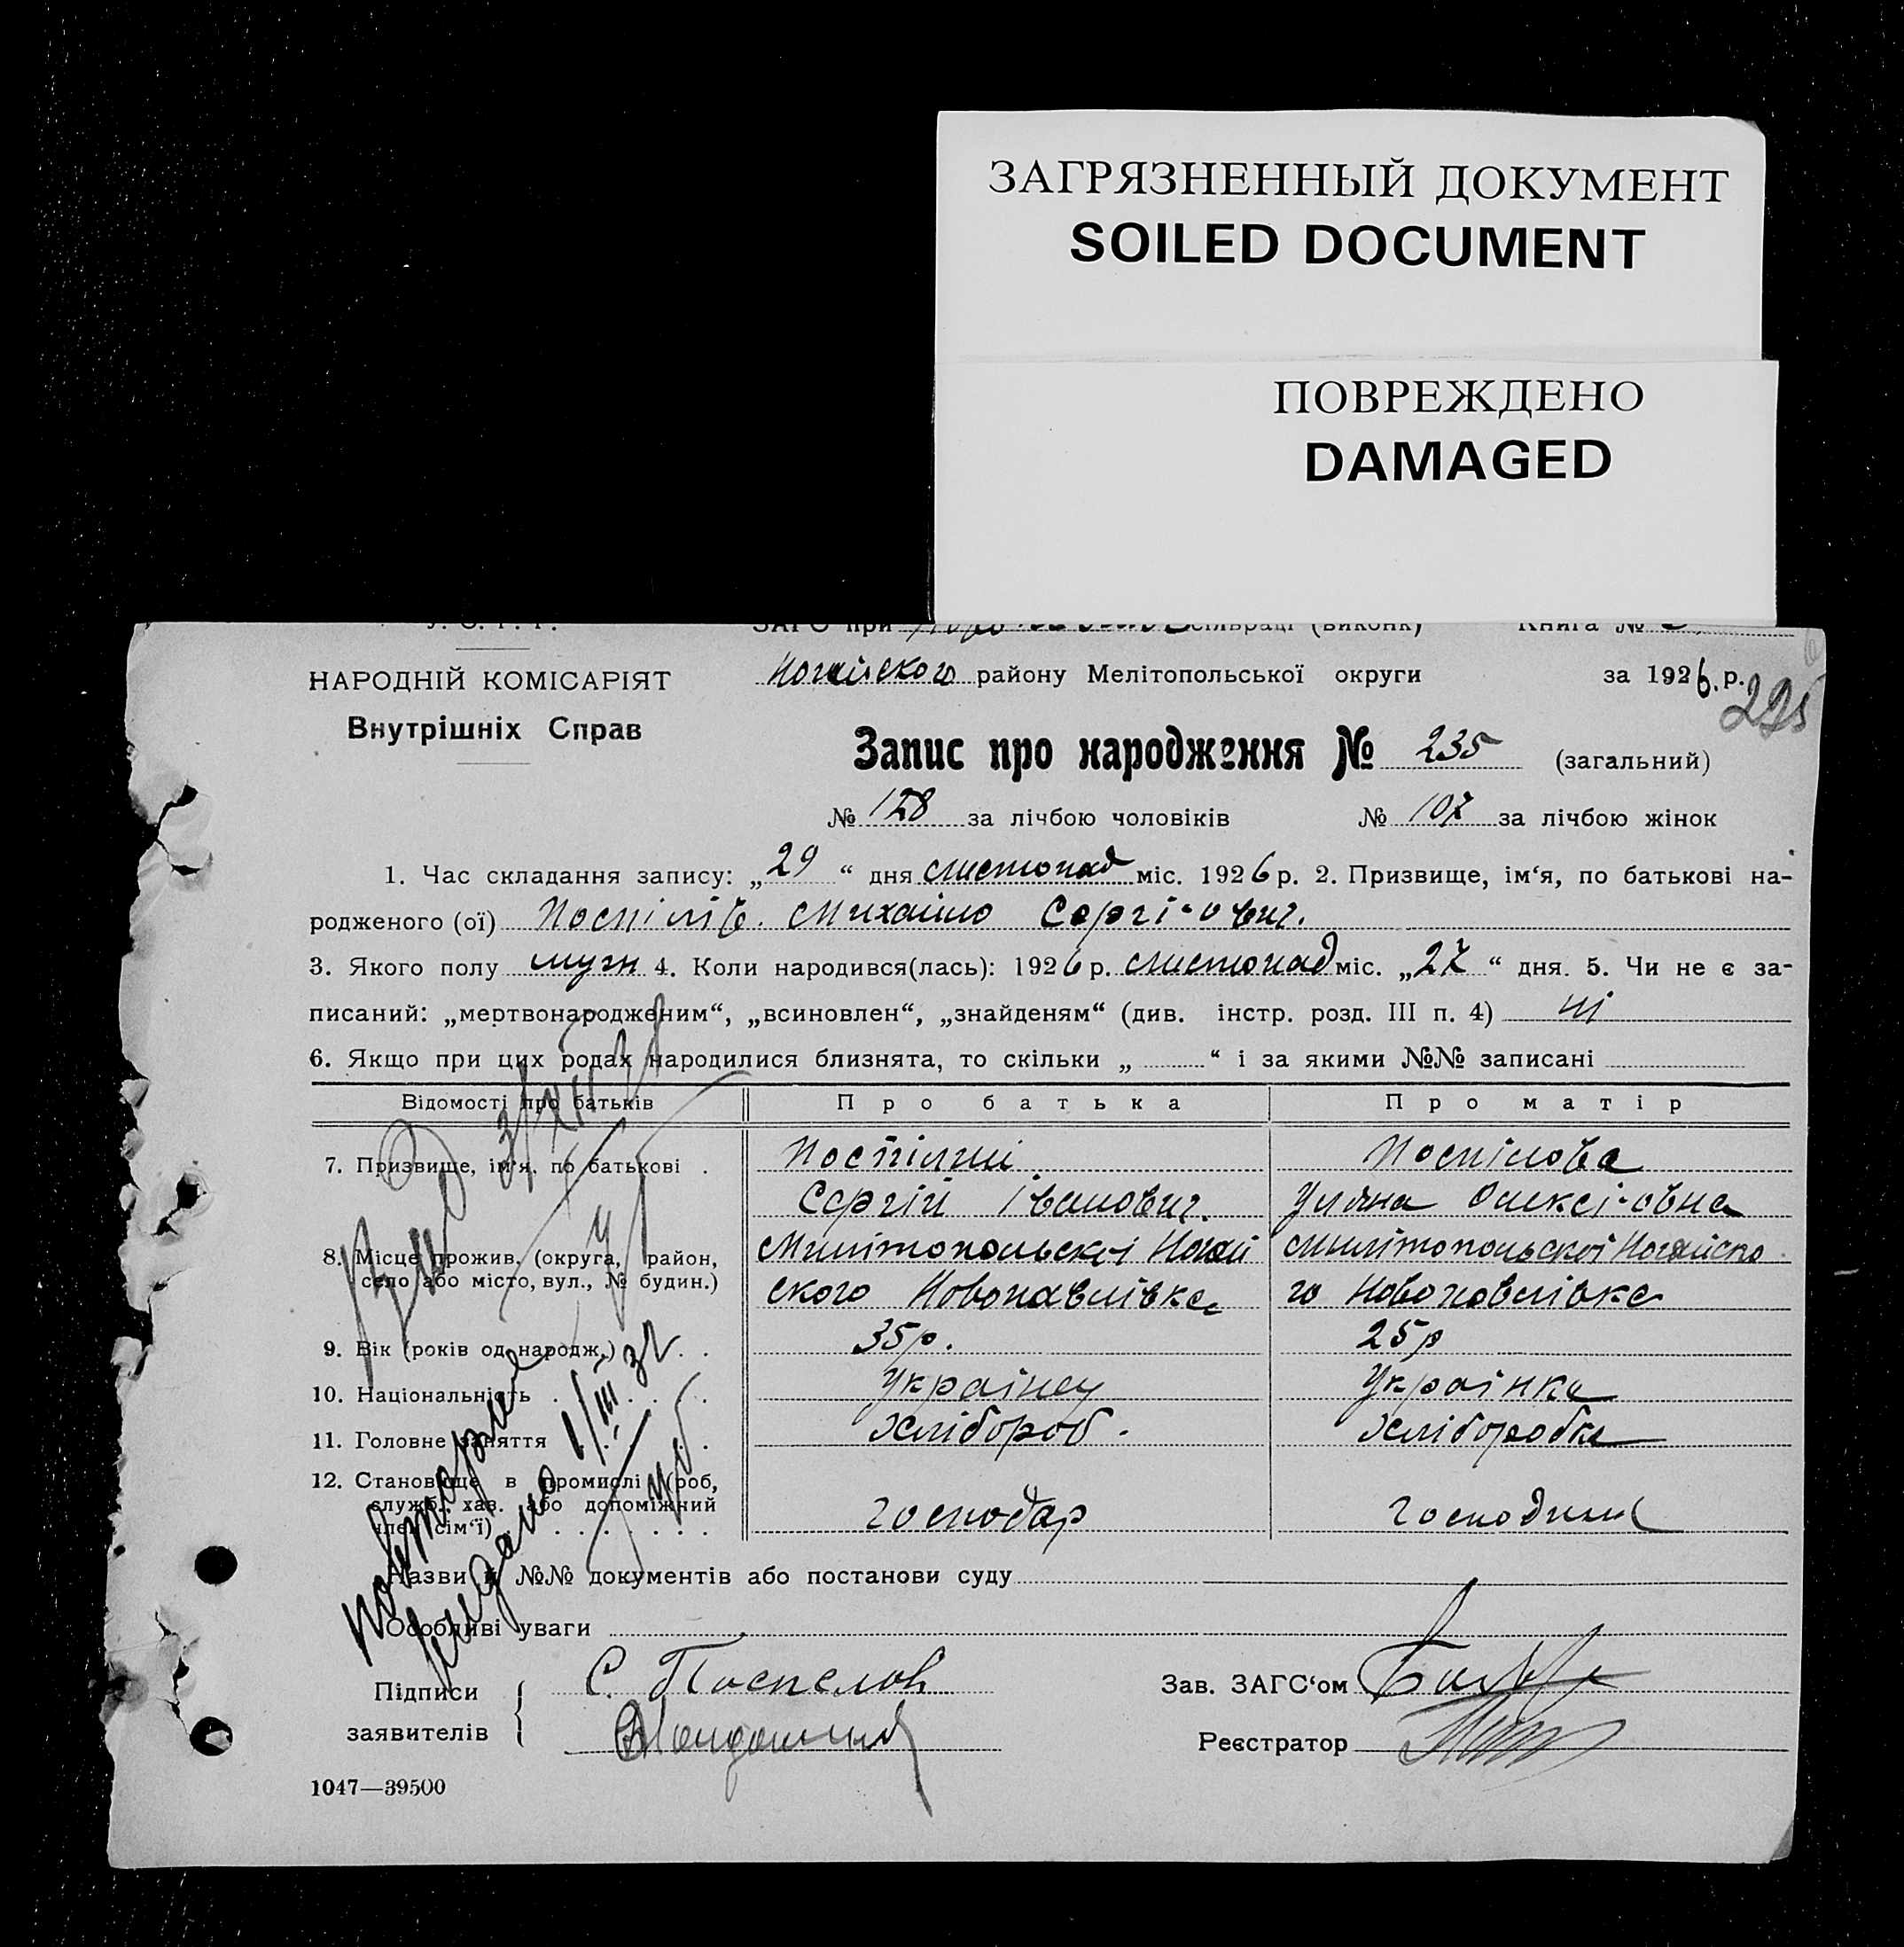 ЗАГРЯЗНЕННЫЙ ДОКУМЕНТ
SOILED DOCUMENT
ПОВРЕЖДЕНО
DAMAGED
У. С. Р. Р.
ЗАГС при сільраці (виконк) Книга №
НАРОДНІЙ КОМІСАРІЯТ
Ногайского району Мелітопольської округи за 1926 р.
Внутрішніх Справ
Запис про народження № 235 (загальний)
№ 128 за лічбою чоловіків № 107 за лічбою жінок
1. Час складання запису: „29“ дня листопад міс. 1926 р. 2. Призвище, ім‘я, по батькові на-
родженого (ої) Поспілів Михайло Сергі-ович.
3. Якого полу мужч 4. Коли народився(лась): 1926 р. листопад міс. „27“ дня. 5. Чи не є за-
писаний: „мертвонародженим“, „всиновлен“, „знайденям“ (див. інстр. розд. III п. 4) ні
6. Якщо при цих родах народилися близнята, то скільки „ “ і за якими №№ записані
Відомості про батьків Про батька Про матір
7. Призвище, ім‘я, по батькові . Поспілів Поспілова
Сергій Іванович. Уляна Олексі-овна
8. Місце прожив. (округа, район, Милітопольскоі Ногай Милітопольскоі Ногайско
село або місто, вул., № будин.) ского Новопавлівка го Новопавлівка
9. Вік (років од народж.) . . 35 р. 25 р
10. Національність Українец Українка
11. Головне заняття Хлібороб. Хліборобка
12. Становище в промислі (роб,
служб., хаз. або допоміжний
член сім‘ї) господар господиня
повторне
видано 1/III 32
Назви й №№ документів або постанови суду
Особливі уваги
Підписи С. Поспелов Зав. ЗАГС‘ом
заявителів Реєстратор
1047—39500